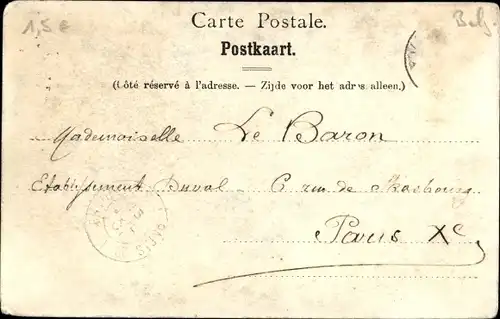 1,5 €
Bel
Carte Postale.
Postkaart.
(Côté réservé à l'adresse. — Zijde voor het adr's alleen.)
Mademoiselle Le Baron
Etablissement Duval - 6 rue de Strasbourg
Paris Xe
PARIS